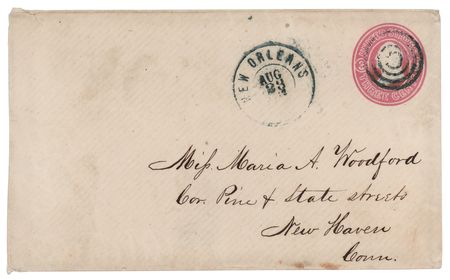 NEW ORLEANS
AUG
23
Miſs. Maria A. Woodford
Cor. Pine & State streets
New Haven
Conn.